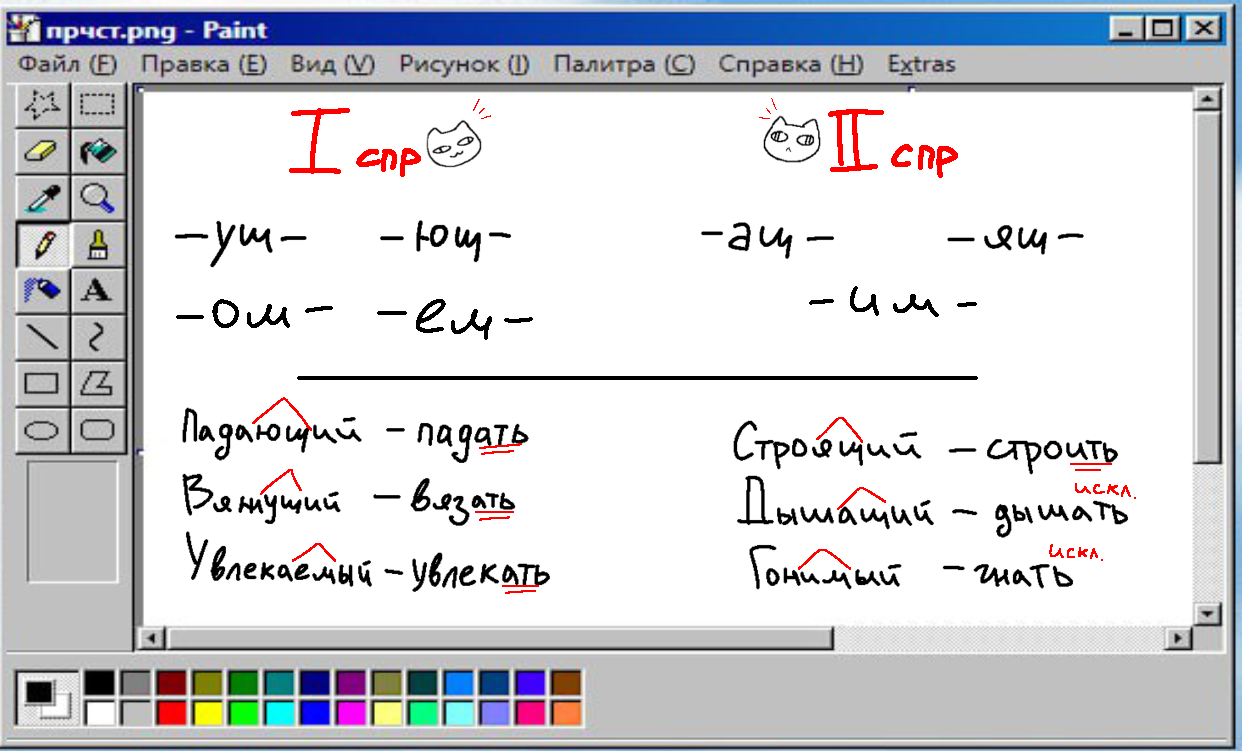 прчст.png - Paint
Файл (F) Правка (E) Вид (V) Рисунок (I) Палитра (C) Справка (H) Extras
A
I спр II спр
-ущ- -ющ- -ащ- -ящ-
-ом- -ем- -им-
Падающий - падать
Вяжущий - вязать
Увлекаемый - увлекать
Строящий - строить
искл.
Дышащий - дышать
искл.
Гонимый - гнать